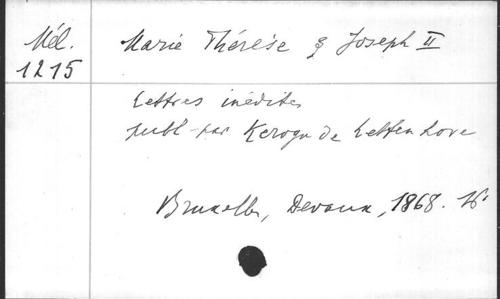 Mél.
1215
Marie Thérèse & Joseph II
Lettres inédites
publ. par Kervyn de Lettenhove
Bruxelles, Devaux, 1868. 16°